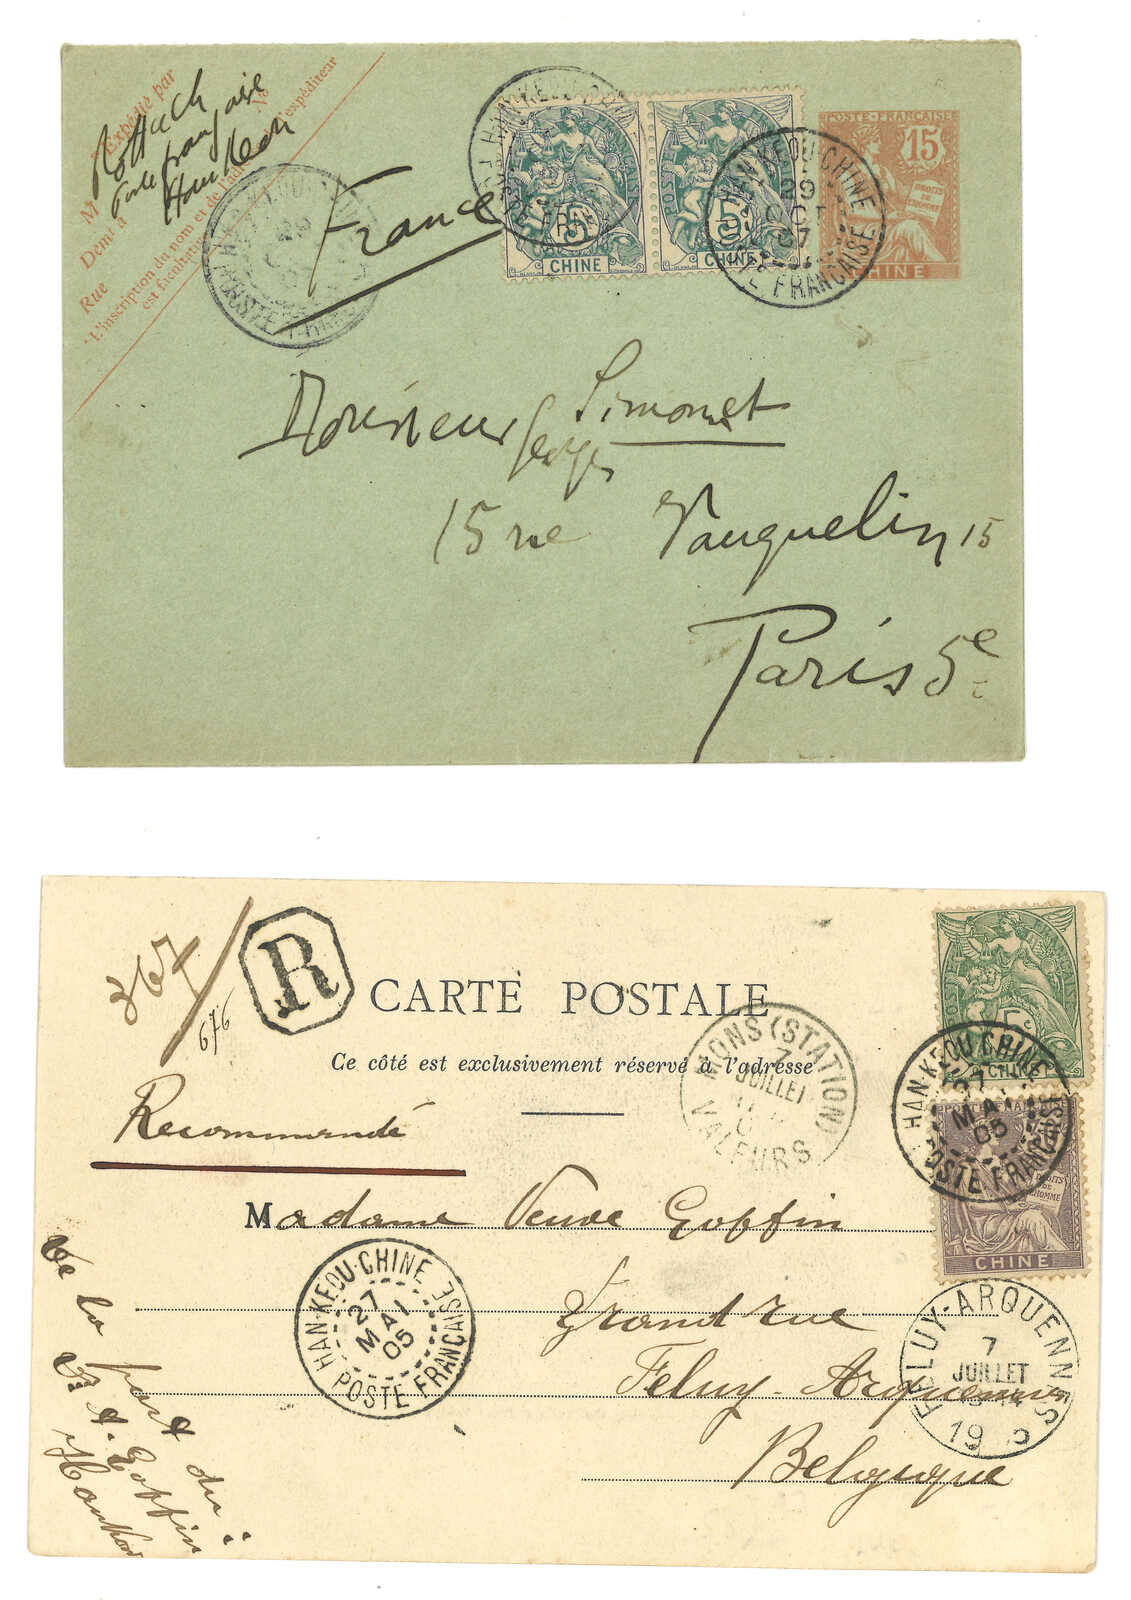 Expédié par
M Rottach
Demt à Poste française
Rue Hankeou No
"L'inscription du nom et de l'adresse de l'expéditeur
est facultative
France
HAN-KEOU-CHINE
POSTE FRANÇAISE
5c
CHINE
POSTE
5c
CHINE
HAN-KEOU-CHINE
29
OCT
07
POSTE FRANÇAISE
POSTE-FRANÇAISE
15
DROITS
DE
L'HOMME
CHINE
Monsieur Simonet
15 rue Vauquelin 15
Paris 5e
267
676
R
CARTE POSTALE
Ce côté est exclusivement réservé à l'adresse
Recommandé
MONS (STATION)
7
JUILLET
VALEURS
5c
CHINE
HAN-KEOU-CHINE
27
MAI
05
POSTE FRANÇAISE
DROITS
DE
L'HOMME
CHINE
Madame Veuve Goffin
Grand rue
Feluy-Arquennes
Belgique
HAN-KEOU-CHINE
27
MAI
05
POSTE FRANÇAISE
FELUY-ARQUENNES
7
JUILLET
19 5
De la part de
A. Goffin
Hankow